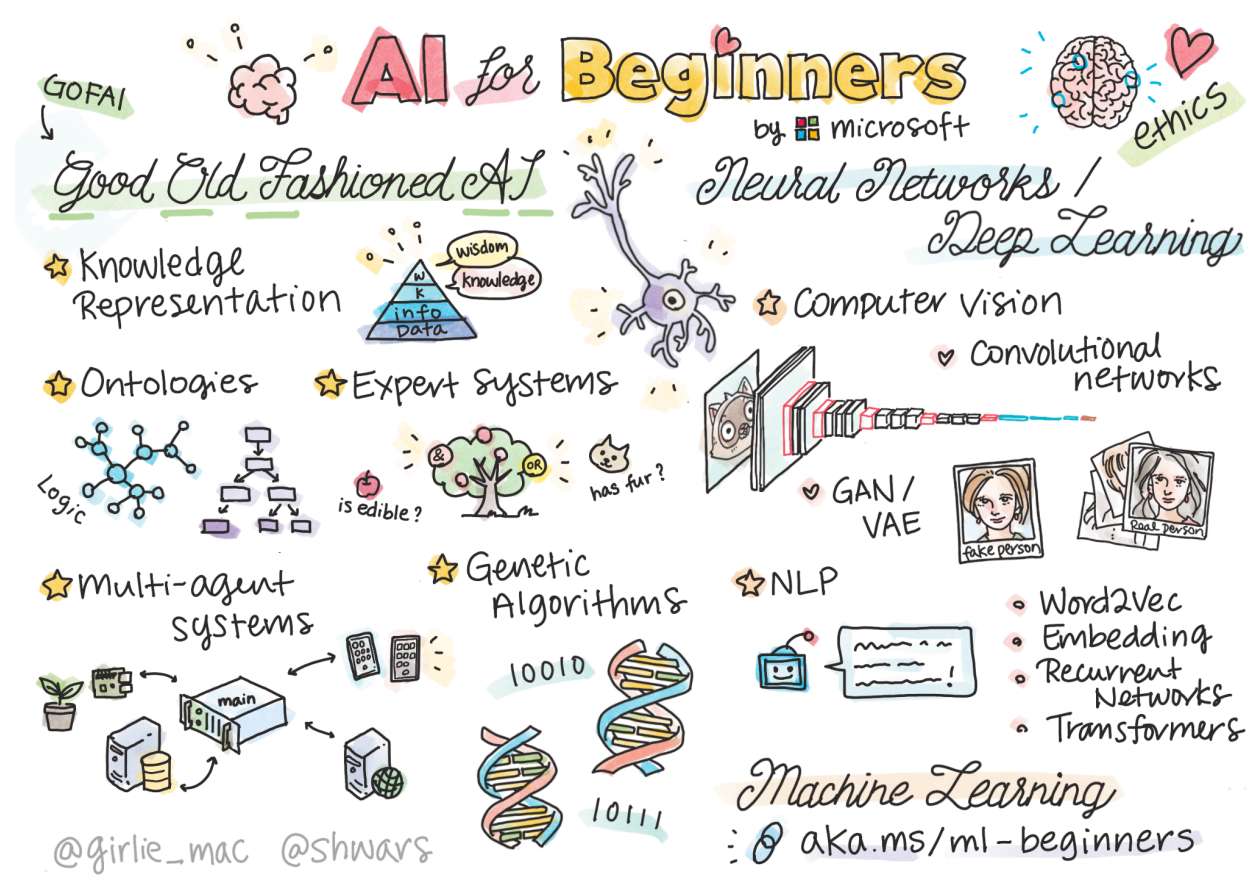 AI for Beginners
by microsoft
ethics
GOFAI
Good Old Fashioned AI
Knowledge
Representation
wisdom
knowledge
W
K
info
Data
Ontologies
Logic
Expert Systems
&
OR
is edible?
has fur?
Multi-agent
systems
main
Genetic
Algorithms
10010
10111
Neural Networks /
Deep Learning
Computer Vision
Convolutional
networks
GAN /
VAE
fake person
Real Person
NLP
!
Word2Vec
Embedding
Recurrent
Networks
Transformers
Machine Learning
aka.ms/ml-beginners
@girlie_mac @shwars